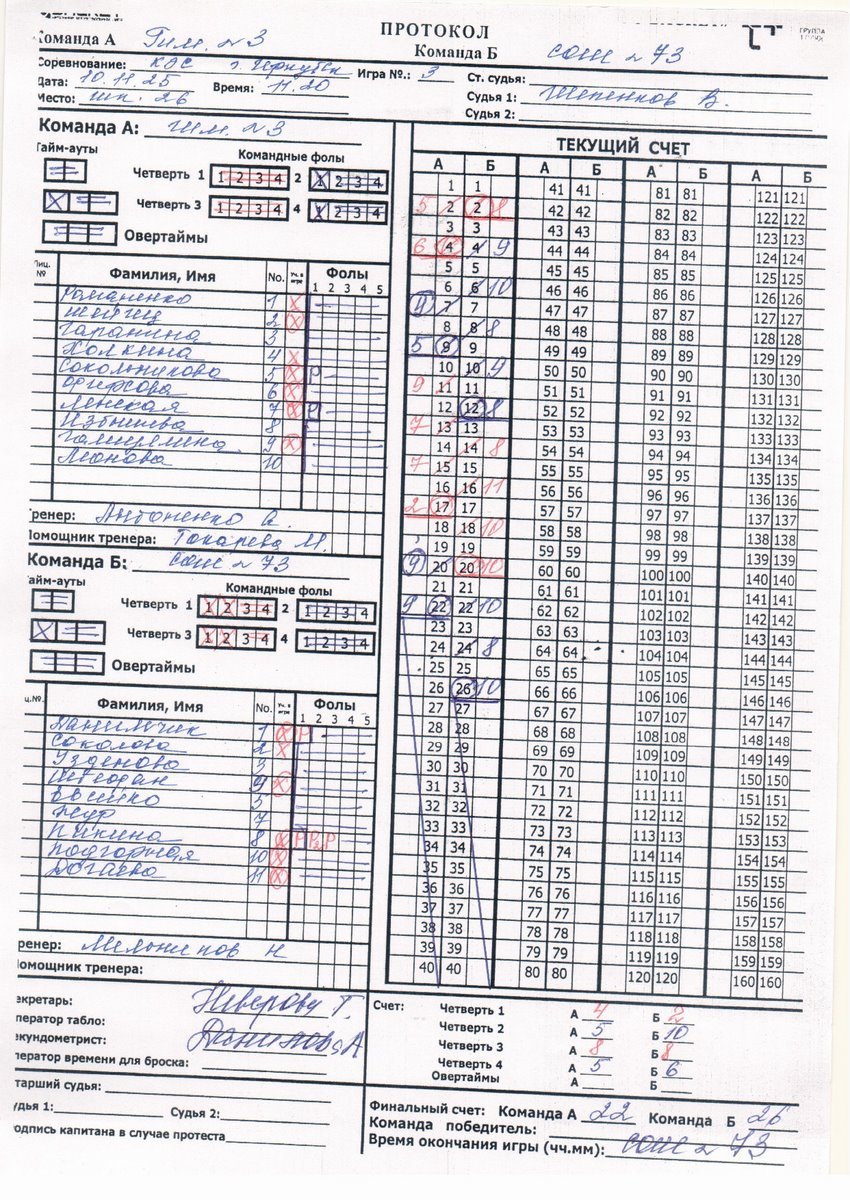 ПРОТОКОЛ
Команда А Гим. №3 Команда Б СОШ №73
Соревнование: КЭС г. Иркутск Игра №.: 3 Ст. судья:
Дата: 10.11.25 Время: 11.20 Судья 1: Шепенков В.
Место: шк. 26 Судья 2:
Команда А: Гим. №3
Тайм-ауты Командные фолы
Четверть 1 1 2 3 4 2 1 2 3 4
Четверть 3 1 2 3 4 4 1 2 3 4
Овертаймы
Лиц. № Фамилия, Имя No. Уч. в игре Фолы
1 2 3 4 5
Романенко 1 X
2 X
Гаранина 3
Холкина 4 X
Сокольникова 5 X P
6 X
Ленская 7 X P
8
9 X
Леонова 10
Тренер: Антоненко
Помощник тренера: Токарева М.
Команда Б: СОШ №73
Тайм-ауты Командные фолы
Четверть 1 1 2 3 4 2 1 2 3 4
Четверть 3 1 2 3 4 4 1 2 3 4
Овертаймы
Лиц.№. Фамилия, Имя No. Уч. в игре Фолы
1 2 3 4 5
Данильчик 1 X P
Соколова 2 X
Узденова 3
X
5
7
Пикина 8 X P P2 P
Подгорная 10 X
11 X
Тренер:
Помощник тренера:
Секретарь: Неверова Т.
Оператор табло:
Секундометрист: Данилова А
Оператор времени для броска:
Старший судья:
Судья 1: Судья 2:
Подпись капитана в случае протеста
ТЕКУЩИЙ СЧЕТ
А Б А Б А Б А Б
1 1 41 41 81 81 121 121
5 2 2 8 42 42 82 82 122 122
3 3 43 43 83 83 123 123
6 4 4 9 44 44 84 84 124 124
5 5 45 45 85 85 125 125
6 6 10 46 46 86 86 126 126
7 7 47 47 87 87 127 127
8 8 8 48 48 88 88 128 128
5 9 9 49 49 89 89 129 129
10 10 9 50 50 90 90 130 130
9 11 11 51 51 91 91 131 131
12 12 8 52 52 92 92 132 132
7 13 13 53 53 93 93 133 133
14 14 8 54 54 94 94 134 134
7 15 15 55 55 95 95 135 135
16 16 11 56 56 96 96 136 136
2 17 17 57 57 97 97 137 137
18 18 10 58 58 98 98 138 138
19 19 59 59 99 99 139 139
9 20 20 10 60 60 100 100 140 140
21 21 61 61 101 101 141 141
9 22 22 10 62 62 102 102 142 142
23 23 63 63 103 103 143 143
24 24 8 64 64 104 104 144 144
25 25 65 65 105 105 145 145
26 26 10 66 66 106 106 146 146
27 27 67 67 107 107 147 147
28 28 68 68 108 108 148 148
29 29 69 69 109 109 149 149
30 30 70 70 110 110 150 150
31 31 71 71 111 111 151 151
32 32 72 72 112 112 152 152
33 33 73 73 113 113 153 153
34 34 74 74 114 114 154 154
35 35 75 75 115 115 155 155
36 36 76 76 116 116 156 156
37 37 77 77 117 117 157 157
38 38 78 78 118 118 158 158
39 39 79 79 119 119 159 159
40 40 80 80 120 120 160 160
Счет: Четверть 1 А 4 Б 2
Четверть 2 А 5 Б 10
Четверть 3 А 8 Б 8
Четверть 4 А 5 Б 6
Овертаймы А Б
Финальный счет: Команда А 22 Команда Б 26
Команда победитель: СОШ №73
Время окончания игры (чч.мм):